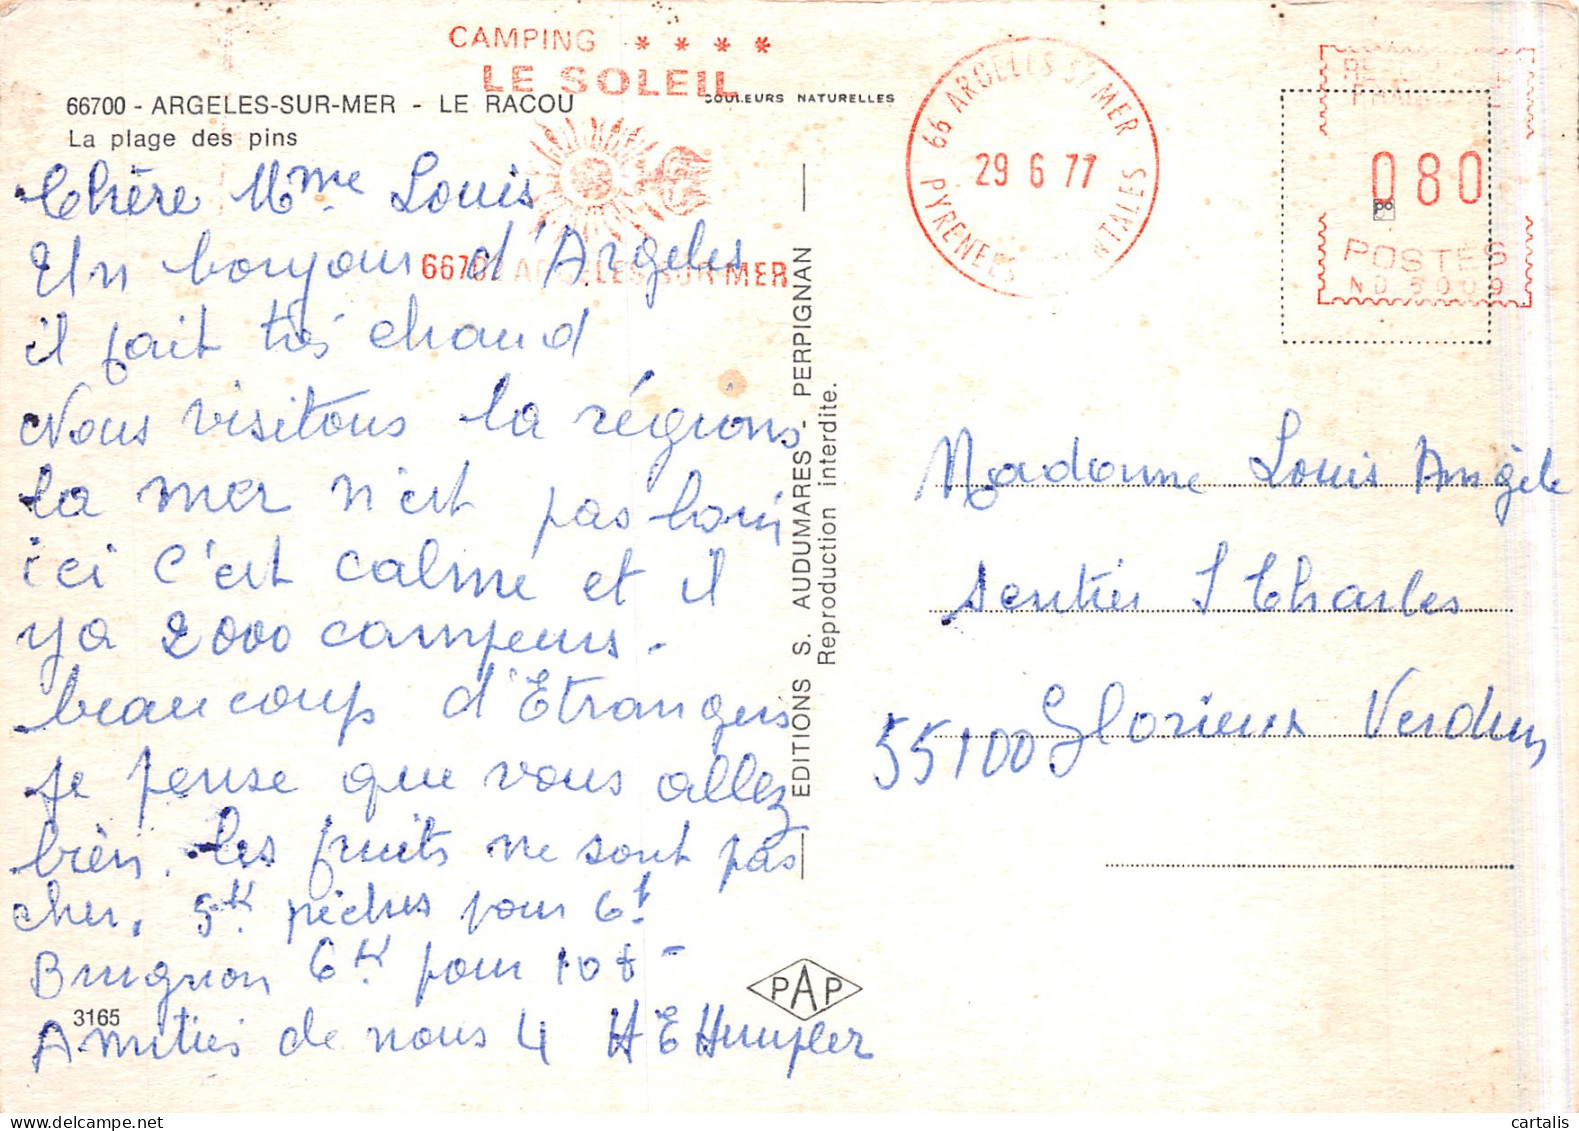 CAMPING * * * *
LE SOLEIL
66700 - ARGELES-SUR-MER - LE RACOU
COULEURS NATURELLES
La plage des pins
66700 ARGELES-SUR-MER
66 ARGELES S/MER
29 6 77
PYRENEES ORIENTALES
080
POSTES
Chère Mme Louis
Un bonjour d'Argeles
il fait très chaud
Nous visitons la régions
la mer n'est pas loin
ici c'est calme et il
y a 2000 campeurs.
beaucoup d'Etrangers
Je pense que vous allez
bien. les fruits ne sont pas
cher. 5k pèches pour 6f
Brugnon 6k pour 10f
Amitiés de nous 4 H E Humpler
3165
EDITIONS S. AUDUMARES - PERPIGNAN
Reproduction interdite.
PAP
Madame Louis Angèle
sentier S Charles
55100 Glorieux Verdun
cartalis